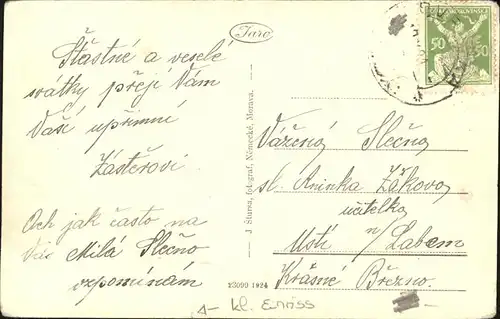 Taro
Šťastné a veselé
svátky přejí Vám
Vaši upřímní
Zástěrovi
Och jak často na
Vás Milá Slečno
vzpomínám
J. Šturса, fotograf, Německé, Morava.
23099 1924
50 50
Vážená Slečna
sl. Aninka Žákova
učitelka
Ustí n/ Labem
Krásné Březno.
kl. Enriss